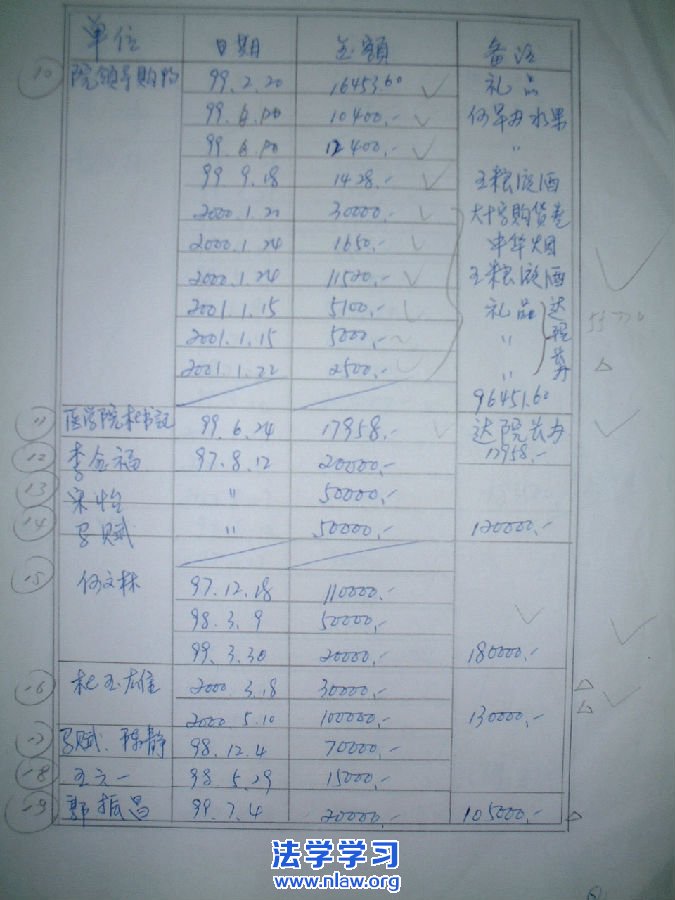 单位 日期 金额 备注
10 院领导购物 99.2.20 16453.60 礼品
99.6.10 10400.- 何早力水果
99.6.10 12400.- 〃
99 9.18 1428.- 五粮液酒
2000.1.21 30000.- 大十字购货查
2000.1.24 1650.- 中华烟
2000.1.24 11520.- 五粮液酒
2001.1.15 5100.- 礼品 达
2001.1.15 5000.- 〃 程
2001.1.22 2500.- 〃
96451.60
11 医学院 书记 99.6.24 17958.- 达院长办
17958.-
12 李金福 97.8.12 20000.-
13 宋怡 〃 50000.-
14 马赋 〃 50000.- 120000.-
15 何文林 97.12.18 110000.-
98.3.9 50000.-
99.3.30 20000.- 180000.-
16 杜玉雄 2000 3.18 30000.-
2000.5.10 100000.- 130000.-
17 马赋、陈静 98.12.4 70000.-
18 王立一 98.5.29 15000.-
19 郭振昌 99.7.4 20000.- 105000.-
法学学习
www.nlaw.org